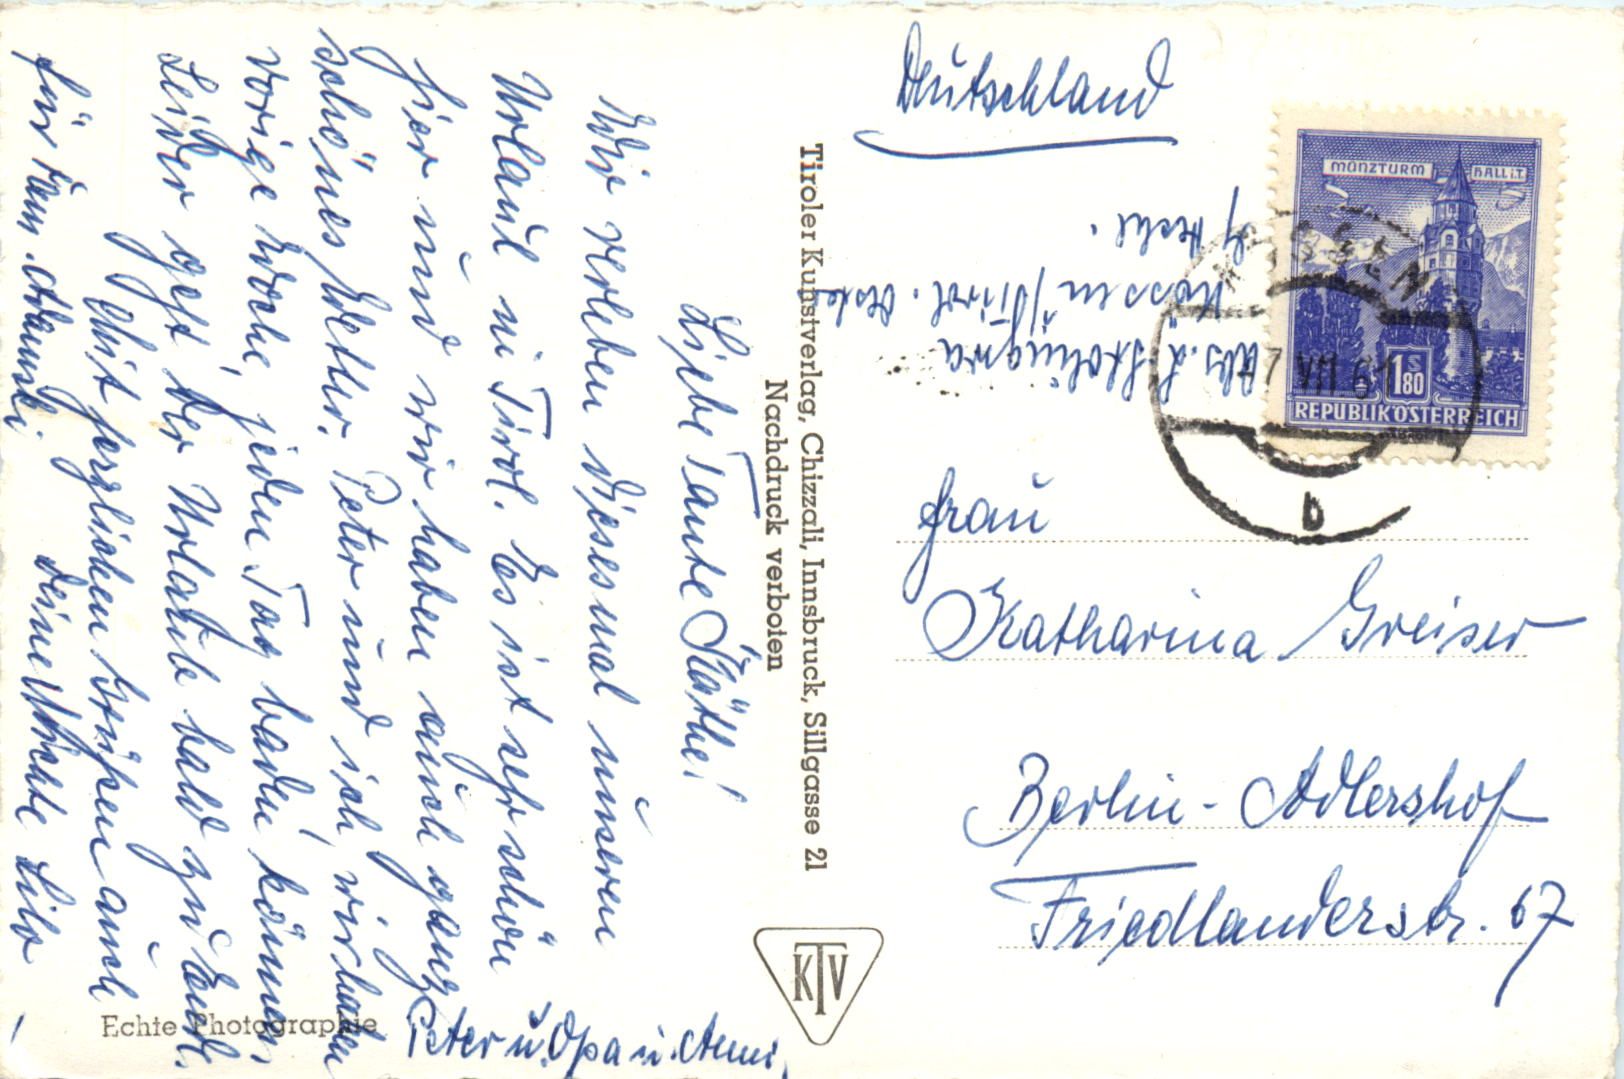 Liebe Tante Käthe!
Wir verleben diesesmal unseren
Urlaub in Tirol. Es ist sehr schön
hier und wir haben auch ganz
schönes Wetter. Peter und ich, wir haben
vorige Woche, jeden Tag baden können.
Leider geht der Urlaub bald zu Ende.
Mit herzlichen Grüßen auch
für
Deine Nichte Lilo
Peter u. Opa u. Anni
Echte Photographie
Tiroler Kunstverlag, Chizzali, Innsbruck, Sillgasse 21
Nachdruck verboten
KTV
Deutschland
MÜNZTURM
HALL i.T.
1S80
REPUBLIK ÖSTERREICH
KÖSSEN
b
Abs. L.
Kössen / Tirol.
Frau
Katharina Greiser
Berlin-Adlershof
Friedlanderstr. 67